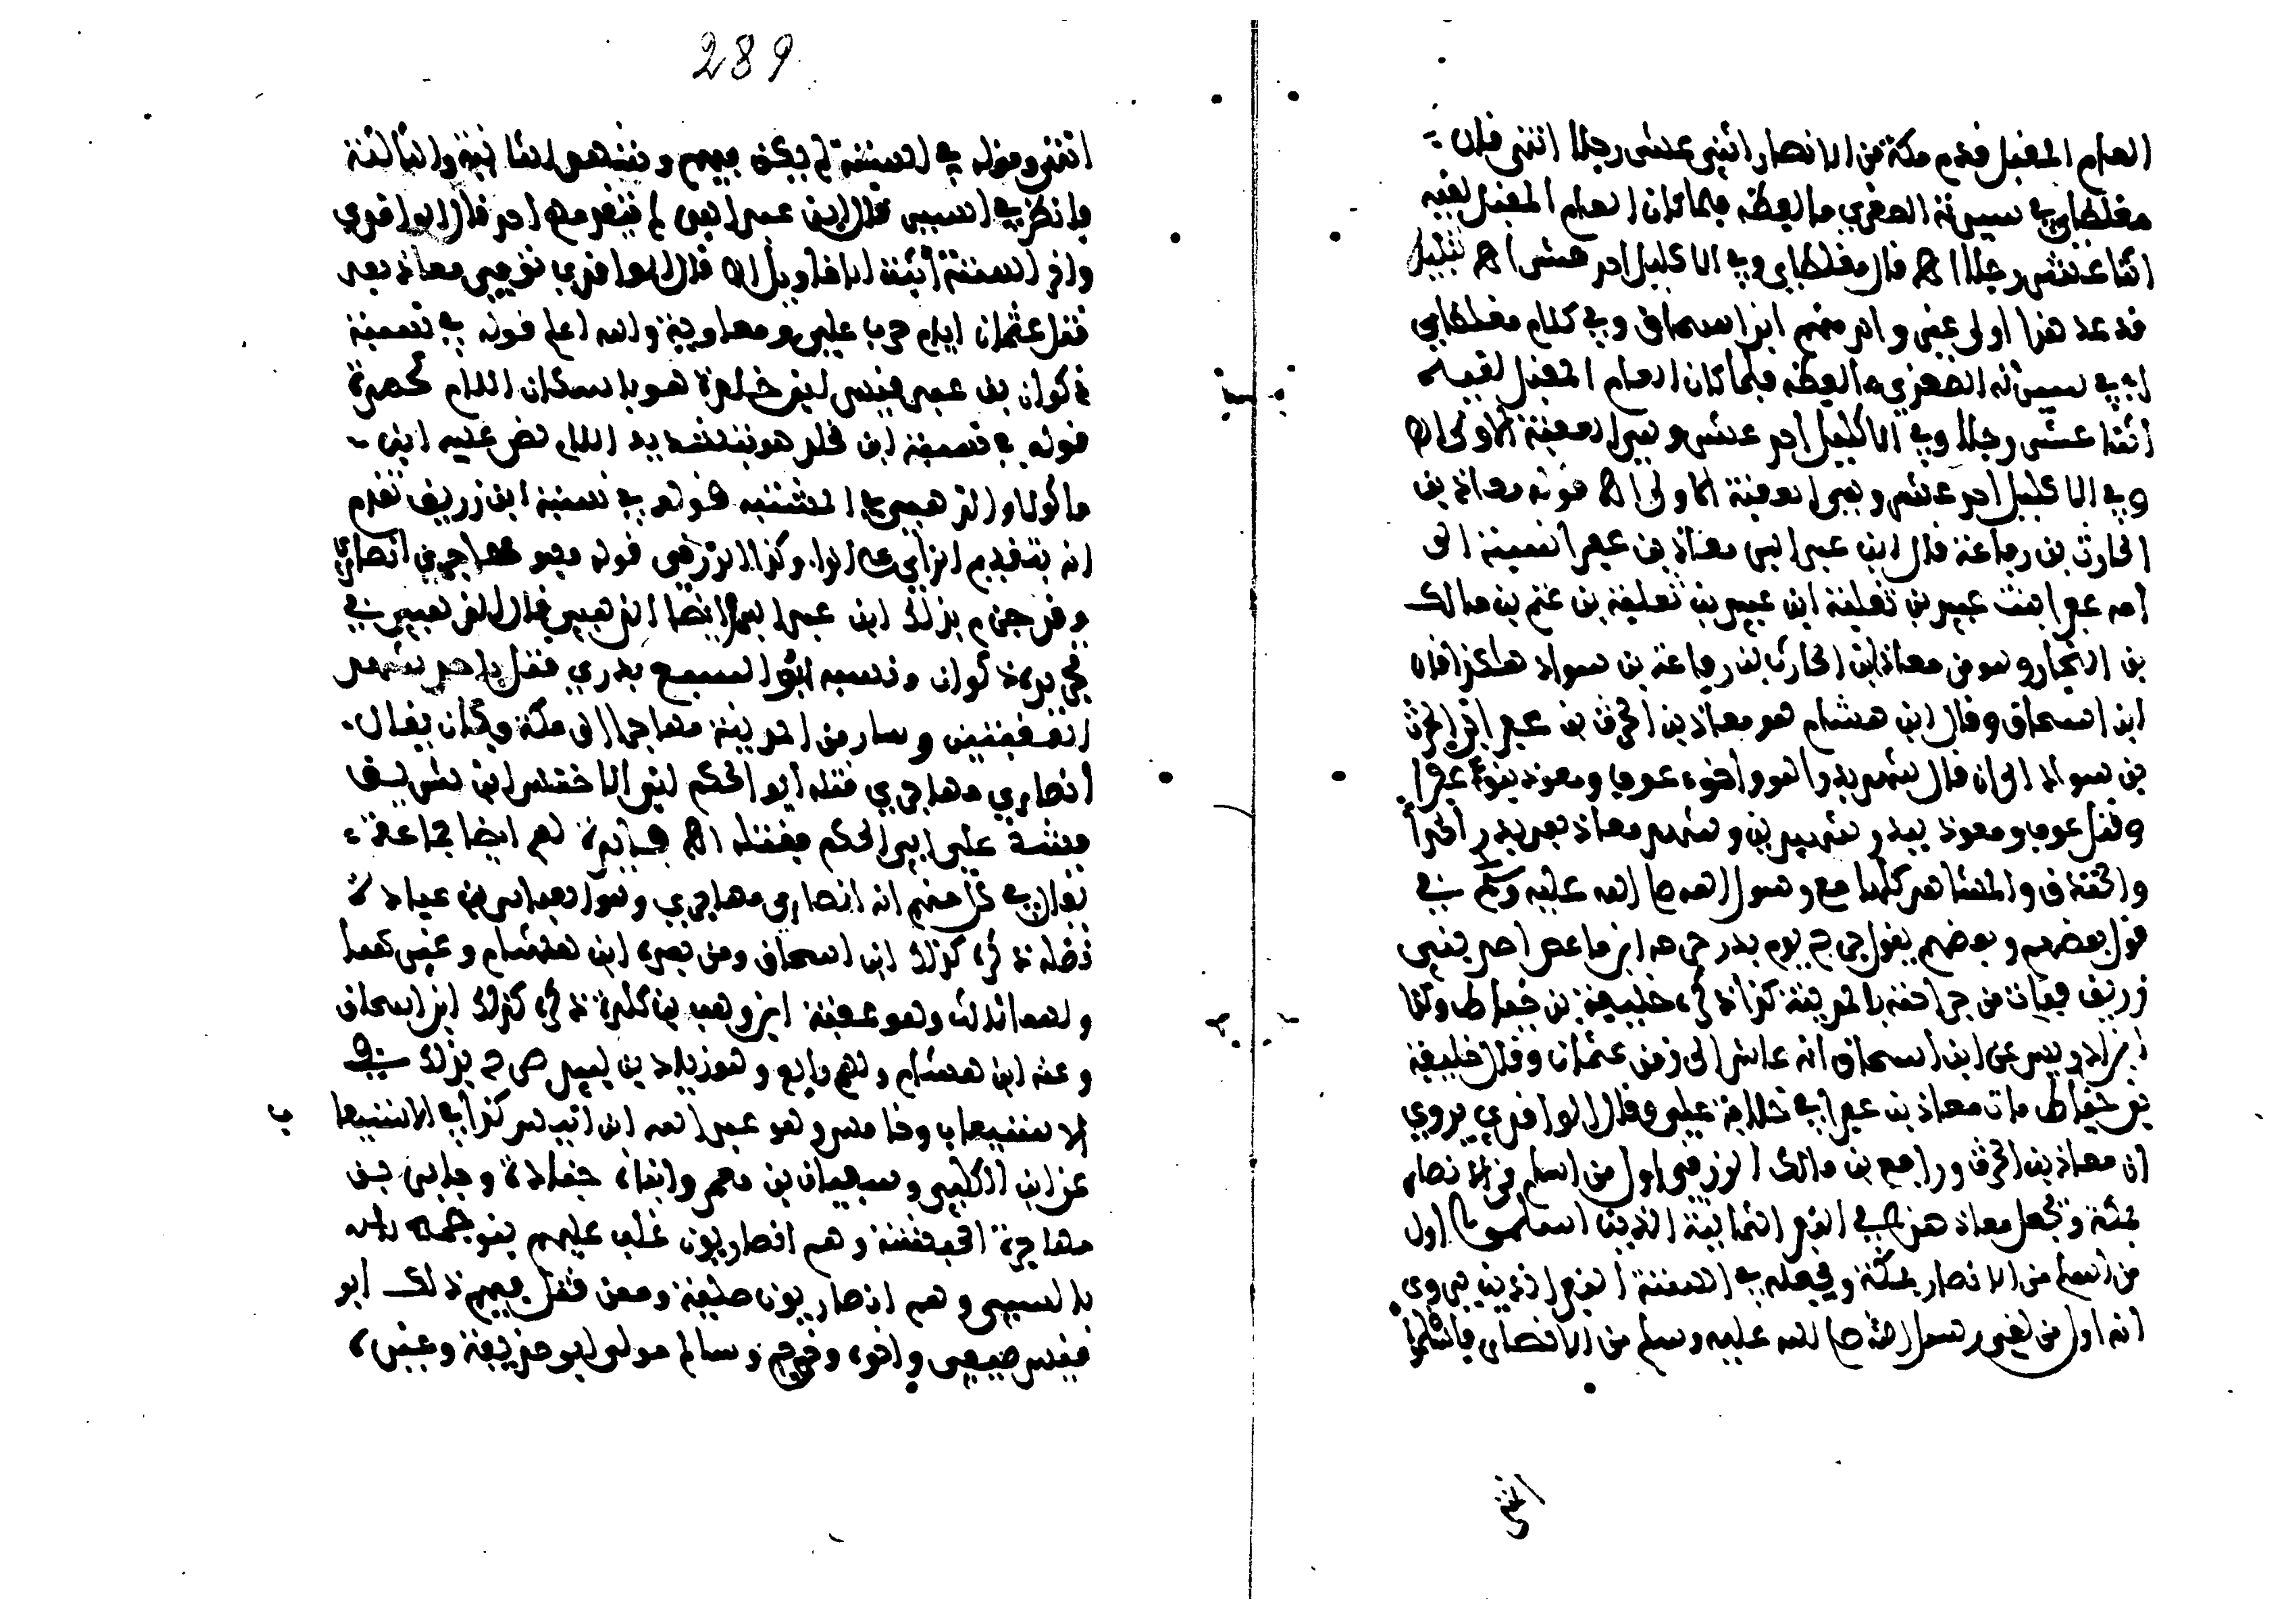 العام المقبل قدم مكة من الانصار اثنى عشر رجلا انتهى قال
مغلطاي في سيرته الصغرى ما لفظه فلما كان العام المقبل لقيه
اثنا عشر رجلا اه قال مغلطاي وفي الاكليل احد عشر اه
قد عد هذا اولى غير واحد منهم ابن اسحاق وفي كلام مغلطاي
اي في سيرته الصغرى ما لفظه فلما كان العام المقبل لقيه
اثنا عشر رجلا وفي الاكليل احد عشر وهي العقبة الاولى اه
وفي الاكليل احد عشر وهي العقبة الاولى اه قوله معاذ بن
الحارث بن رفاعة قال ابن عبد البر معاذ بن عفرا نسبة الى
امه عفرا بنت عبيد بن ثعلبة ابن عبيد بن ثعلبة بن غنم بن مالك
بن النجار وهو من معاذ ابن الحارث بن رفاعة بن سواد هاكذا قال
ابن اسحاق وقال ابن هشام هو معاذ بن الحرث بن عفرا ابن الحرث
بن سواد الى ان قال شهد بدرا هو واخوه عوف ومعوذ بنو عفرا
وقتل عوف ومعوذ ببدر شهيدين وشهد معاذ بعد بدر احدا
والخندق والمشاهد كلها مع رسول الله صلى الله عليه وسلم في
قول بعضهم وبعضهم يقول جرح يوم بدر جرحه ابن ماعص احد بني
زريق فمات من جراحته بالمدينة كذا ذكره خليفة بن خياط وكذا
ابن ادريس عن ابن اسحاق انه عاش الى زمن عثمان وقال خليفة
بن خياط مات معاذ بن عفرا في خلافة علي وقال الواقدي يروى
ان معاذ بن الحرث ورافع بن مالك الزرقي اول من اسلم من الانصار
بمكة ويجعل معاذ هذا في النفر الثمانية الذين اسلموا اول
من اسلم من الانصار بمكة ويجعله في الستة النفر الذين يروى
انه اول من لقي رسول الله صلى الله عليه وسلم من الانصار فاسلموا
انتهى
289
انتهى وقوله في الستة لم يكن فيهم وشهد الثانية والثالثة
فانظر في السير قال ابن عبد البر لم يتقدمهم احد قال الواقدي
وامر الستة اثبت الاقاويل اه قال الواقدي توفي معاذ بعد
قتل عثمان ايام حرب علي ومعاوية والله اعلم قوله في تسمية
ذكوان بن عبد قيس ابن خلدة هو باسكان اللام كحمزة
قوله في تسمية ابن مخلد هو بتشديد اللام نص عليه ابن
ماكولا والذهبي في المشتبه قوله في نسبة ابن زريق تقدم
انه بتقديم الزاي على الرا وكذا الزرقي قوله فهو مهاجري انصاري
وقد جزم بذلك ابن عبد البر ايضا الذهبي قال الذهبي في
تجريده ذكوان ونسبه ابو السبع بدري قتل باحد شهد
العقبتين وسار من المدينة مهاجرا الى مكة وكان يقال
انصاري مهاجري قتله ابو الحكم ابن الاخنس ابن شريق
فشد علي ابي الحكم فقتله اه فائدة لهم ايضا جماعة
يقال في كل منهم انه انصاري مهاجري وهو العباس بن عبادة
نضلة ذكره كذلك ابن اسحاق ومن بعده ابن هشام وغير هما
ولهما ثالث وهو عقبة ابن وهب بن كلدة ذكره كذلك ابن اسحاق
وعنه ابن هشام ولهم رابع وهو زياد بن لبيد صرح بذلك في
الاستيعاب وخامس وهو عبد الله ابن انيس كذا في الاستيعاب
عن ابن الكلبي وسفيان بن معمر وابناه جنادة وجابر من
مهاجرة الحبشة وهم انصاريون غلب عليهم بنو جمح
بالسبي وهم انصاريون حليفة ومعن قتل فيهم ذلك ابو
قيس صيفي واخوه وخرج وسالم مولى ابو حذيفة وغيره